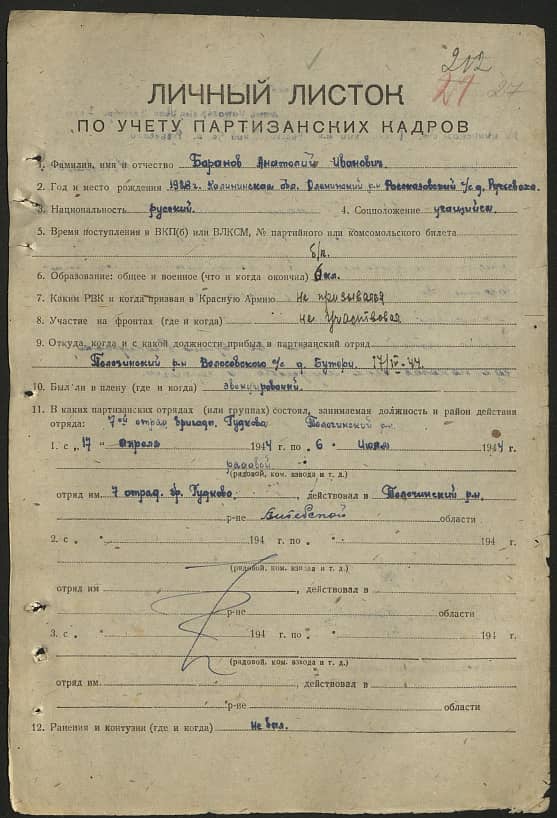 202
27 27
ЛИЧНЫЙ ЛИСТОК
ПО УЧЕТУ ПАРТИЗАНСКИХ КАДРОВ
1. Фамилия, имя и отчество Баранов Анатолий Иванович.
2. Год и место рождения 1928 г. Калининская обл. Оленинский р-н с/с д.
3. Национальность русский. 4. Соцположение учащийся.
5. Время поступления в ВКП(б) или ВЛКСМ, № партийного или комсомольского билета
б/п.
6. Образование: общее и военное (что и когда окончил) 6 кл.
7. Каким РВК и когда призван в Красную Армию не призывался
8. Участие на фронтах (где и когда) не участвовал
9. Откуда, когда и с какой должности прибыл в партизанский отряд
Толочинский р-н Волосовского с/с д. Бутери. 17/IV-44.
10. Был ли в плену (где и когда) эвакуированный.
11. В каких партизанских отрядах (или группах) состоял, занимаемая должность и район действия
отряда: 7-ой отряд бригады Гудкова Толочинский р-н.
1. с „17" апреля 1944 г. по „6" июля 1944 г.
рядовой
(рядовой, ком. взвода и т. д.)
отряд им. 7 отряд. бр. Гудкова, действовал в Толочинский р-н.
р-не Витебской области
2. с „ " 194 г. по „ " 194 г.
(рядовой, ком. взвода и т. д.)
отряд им , действовал в
р-не области
3. с „ " 194 г. по „ " 194 г.
(рядовой, ком. взвода и т. д.)
отряд им. , действовал в
р-не области
12. Ранения и контузии (где и когда) не был.